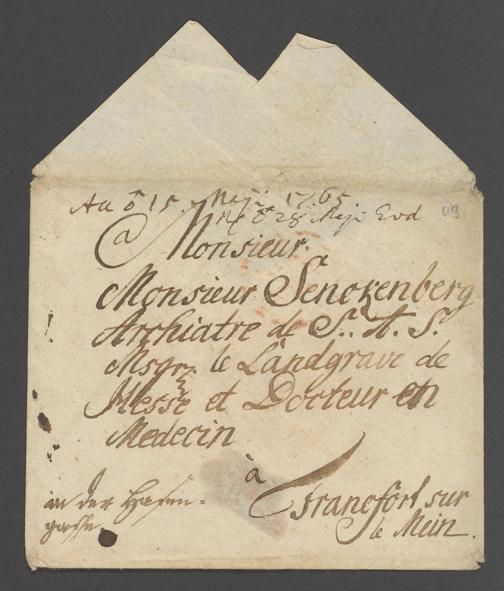 Au ō 15. Maji 1765
ō 28 Maji Eod
119
@ Monsieur
Monsieur Senckenberg
Archiatre de S. A. S.
Msgr. le Landgrave de
Hesse et Docteur en
Medecin
à
Francfort sur
le Mein.
in der Hasen-
gasse